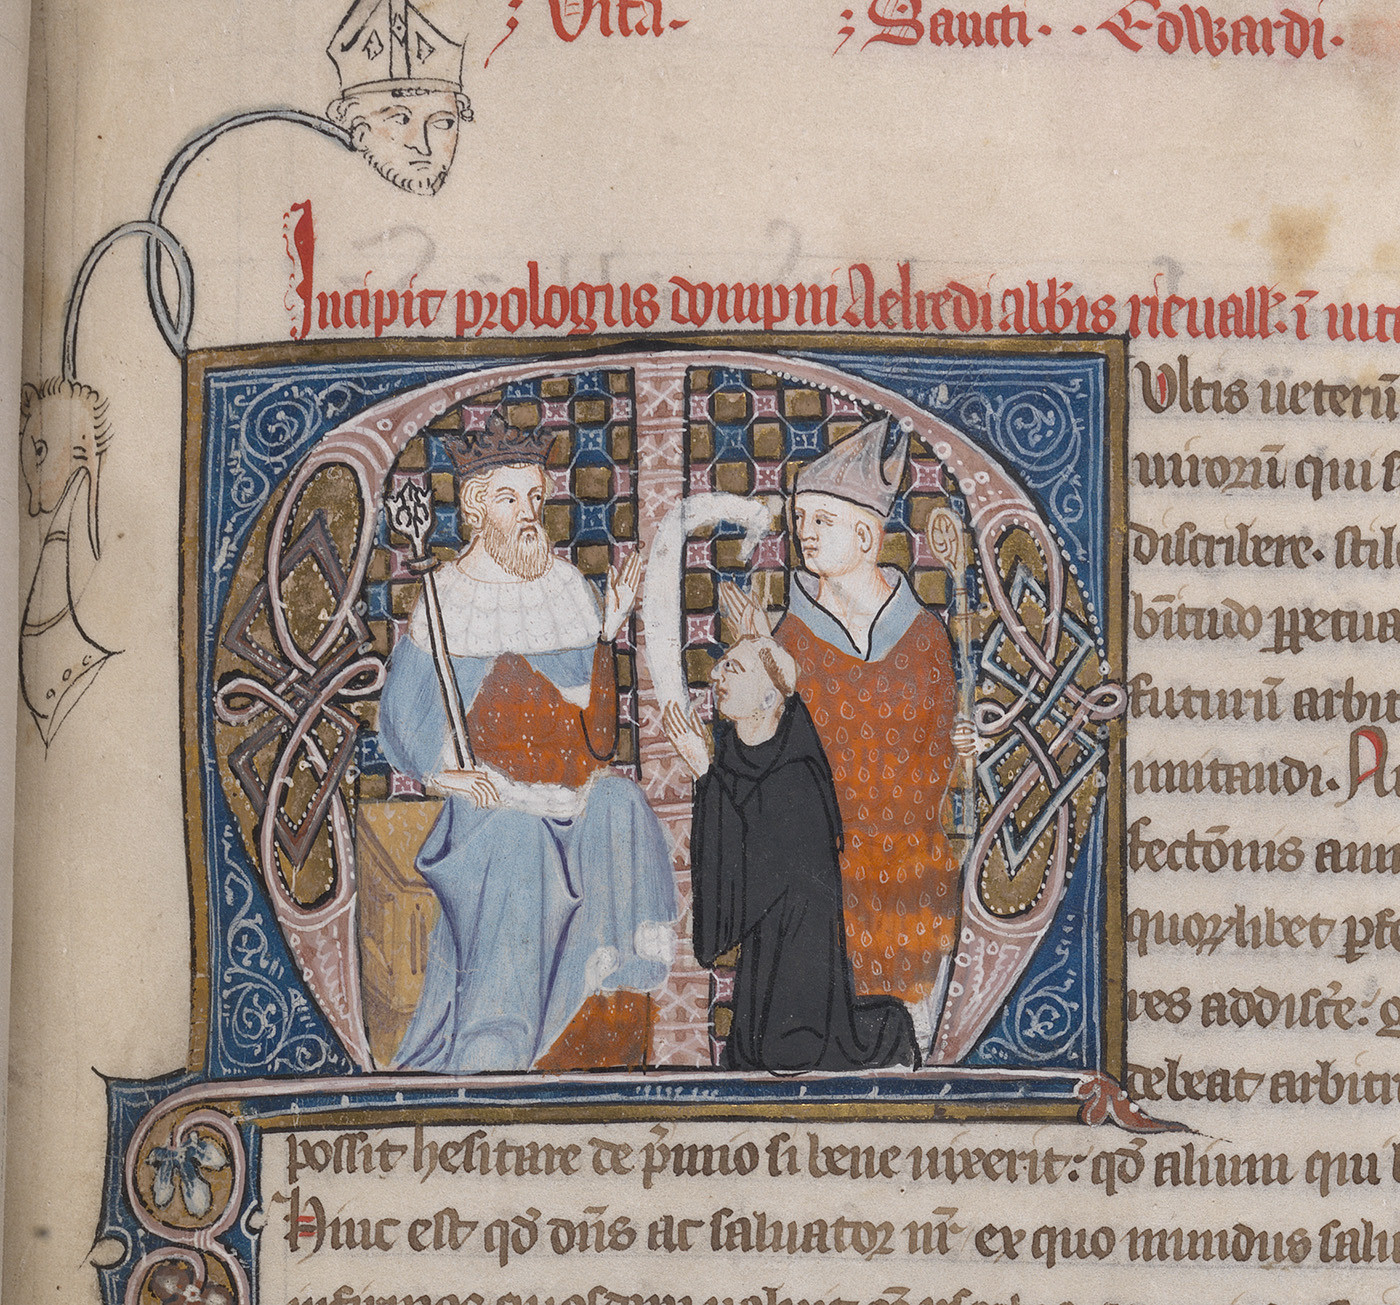 Vita. Sancti. Edwardi.
Incipit prologus dompni Aelredi abb̄is rieuall̄. ī uit
Ultis ueterū
uirorū qui s
discribere. stil
bn̄tudo ꝑpetua
futurū arbit
imitandi. A
fectōnis ann
quorūlibet ꝑf
res addisc̄e:
debeat arbit
possit hesitare de p̄mio si bene uixerit: qd̄ alium qui
Hinc est qd̄ dn̄s ac saluator nr̄ ex quo mundus salu